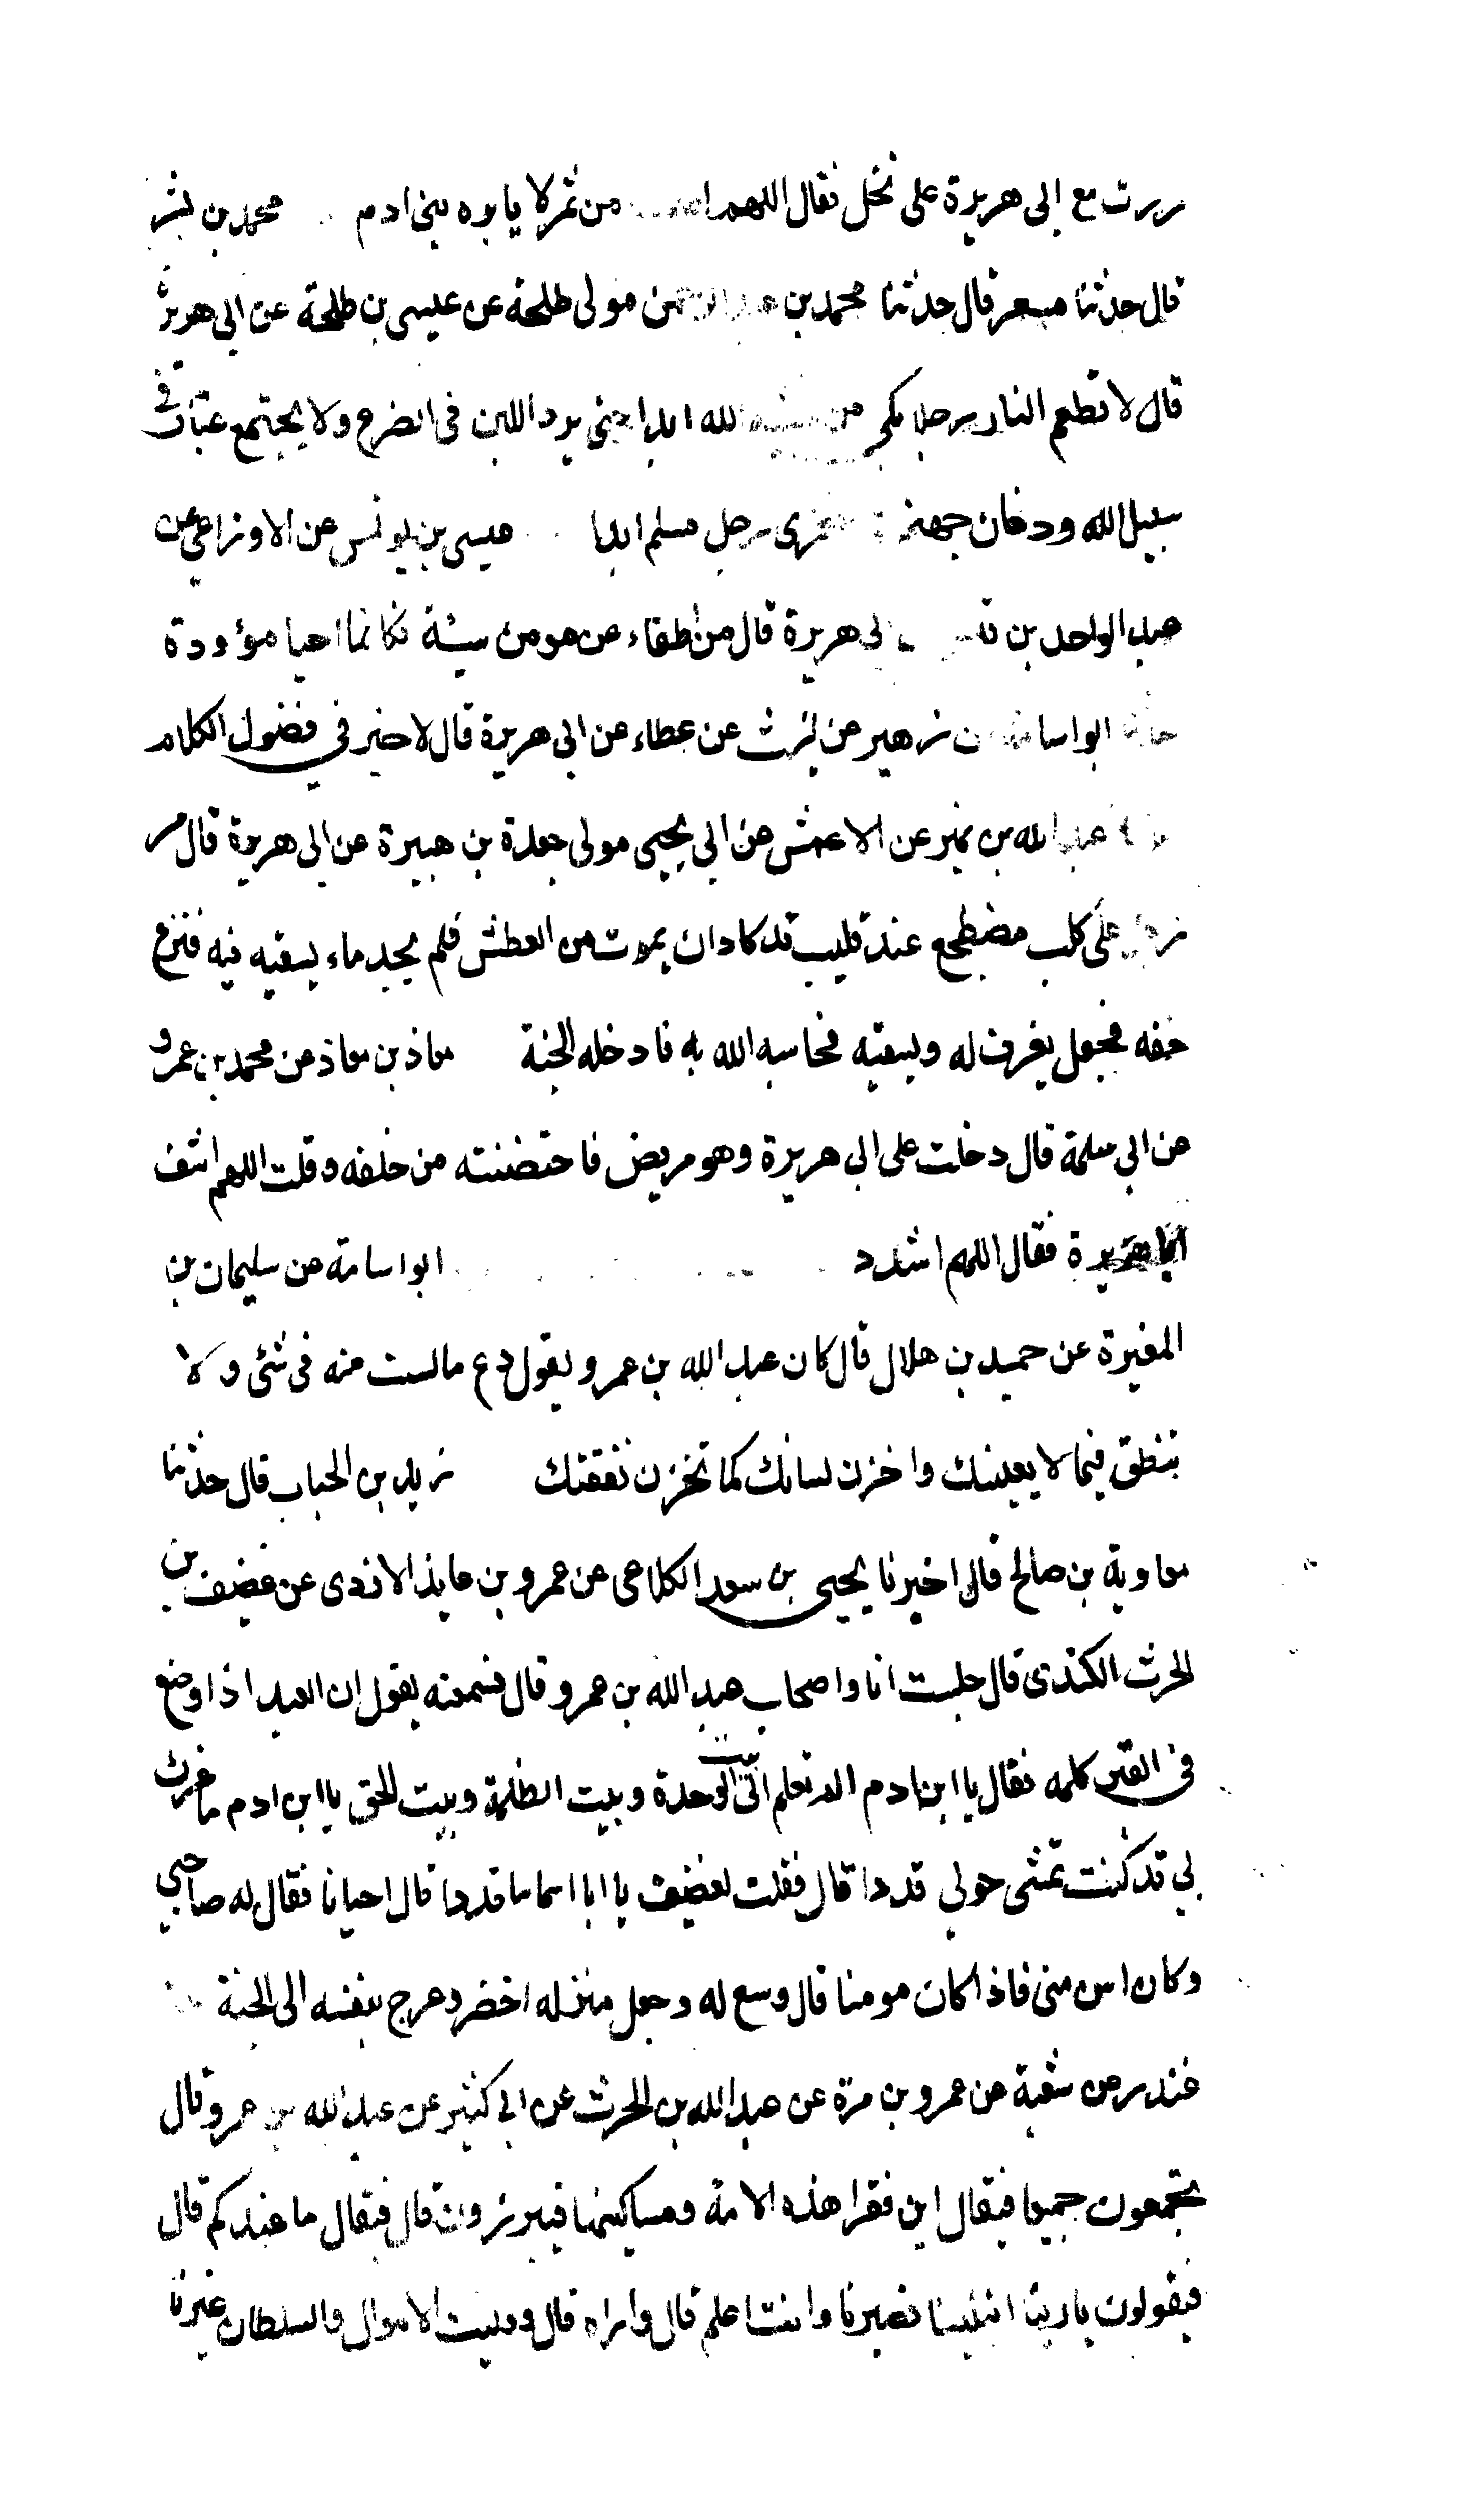 مررت مع ابى هريرة على نخل فقال اللهم من ثمر لا يابره بنى ادم محمد بن بشر
قال حدثنا مسعر قال حدثنا محمد بن عبد الرحمن مولى طلحة عن عيسى بن طلحة عن ابى هريرة
قال لا تطعم النار رجلا بكى من خشية الله ابدا حتى يرد اللبن فى الضرع ولا يجتمع غبار فى
سبيل الله ودخان جهنم منخرى رجل مسلم ابدا عيسى بن يونس عن الاوزاعى عن
عبد الواحد بن قيس ابى هريرة قال من اطفاء عن مومن سيئة فكانما احيا مؤودة
حدثنا ابو اسامة عن زهير عن ليث عن عطاء عن ابى هريرة قال لا خير فى فضول الكلام
عبد الله بن نمير عن الاعمش عن ابى يحيى مولى جعدة بن هبيرة عن ابى هريرة قال مر
رجل على كلب مضطجع عند قليب قد كاد ان يموت من العطش فلم يجد ماء يسقيه فيه فنزع
خفه فجعل يغرف له ويسقيه فحاسبه الله به فادخله الجنة معاذ بن معاذ عن محمد بن عمرو
عن ابى سلمة قال دخلت على ابى هريرة وهو مريض فاحتضنته من خلفه وقلت اللهم اشف
ابا هريرة فقال اللهم اشدد ابو اسامة عن سليمان بن
المغيرة عن حميد بن هلال قال كان عبد الله بن عمرو يقول دع ما لست منه فى شئ ولا
تنطق فيما لا يعينك واخزن لسانك كما تخزن نفقتك زيد بن الحباب قال حدثنا
معاوية بن صالح قال اخبرنا يحيى بن سعد الكلاعى عن عمرو بن عايذ الازدى عن غضيف بن
الحرث الكندى قال جلست انا واصحاب عبد الله بن عمرو قال فسمعته يقول ان العبد اذا وضع
فى القبر كلمه فقال يا ابن ادم الم تعلم انى بيت الوحدة وبيت الظلمة وبيت الحق يا ابن ادم ما غرك
بى قد كنت تمشى حولى قددا قال فقلت لغضيف يا ابا اسما ما قددا قال احيانا فقال له صاحبي
وكان اسن منى فاذا كان مومنا قال وسع له وجعل منزله اخضر وعرج بنفسه الى الجنة
غندر عن شعبة عن عمرو بن مرة عن عبد الله بن الحرث عن ابى كثير عن عبد الله بن عمرو قال
يجتمعون جميعا فيقال اين فقرا هذه الامة ومساكينها فيبرزون قال فيقال ما عندكم قال
فيقولون يا ربنا ابتلينا فصبرنا وانت اعلم قال واراه قال ووليت الاموال والسلطان غيرنا